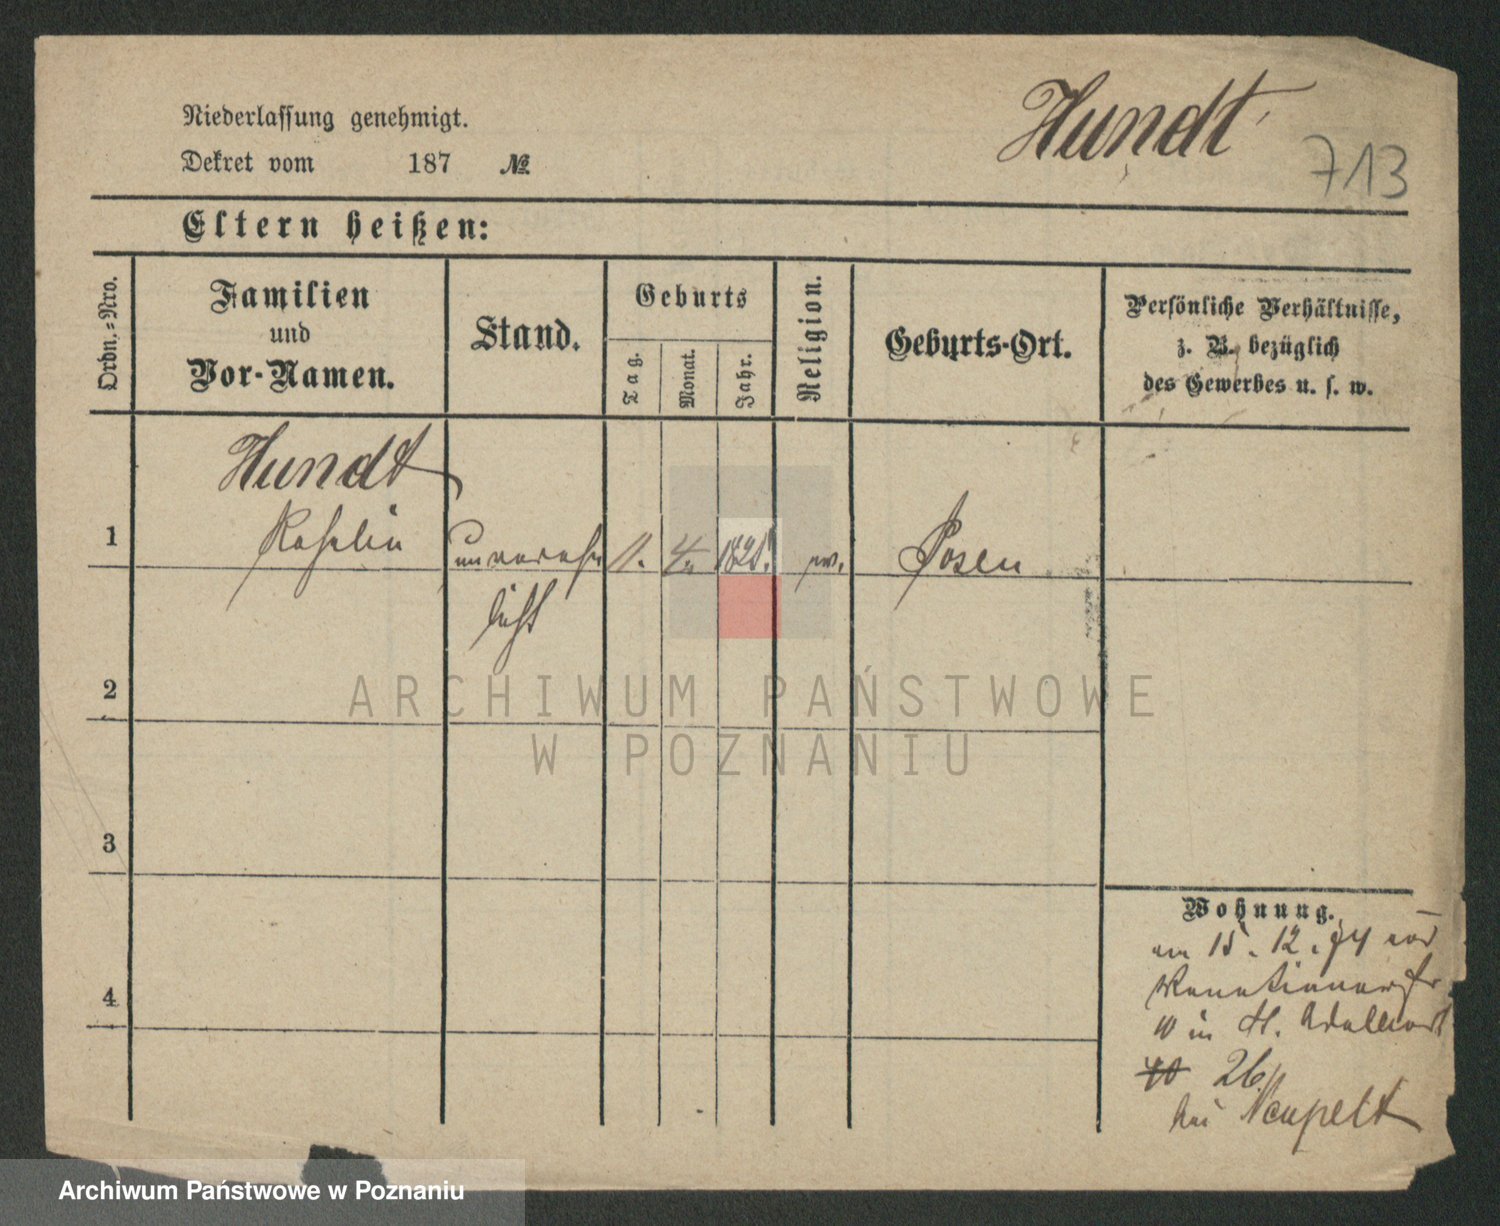 Hundt
713
Niederlassung genehmigt.
Dekret vom 187 №
Eltern heißen:
Ordn.-Nro.
Familien
und
Vor-Namen.
Stand.
Geburts
Tag.
Monat.
Jahr.
Religion.
Geburts-Ort.
Persönliche Verhältnisse,
z. B. bezüglich
des Gewerbes u. s. w.
Hundt
1 Rosalie unverehe 11. 4. 1821. ev. Posen
licht
2
3
4
Wohnung.
am 15. 12. 74 von
10 in St. Adalbert
40 26
bei Neupelt
ARCHIWUM PAŃSTWOWE
W POZNANIU
Archiwum Państwowe w Poznaniu